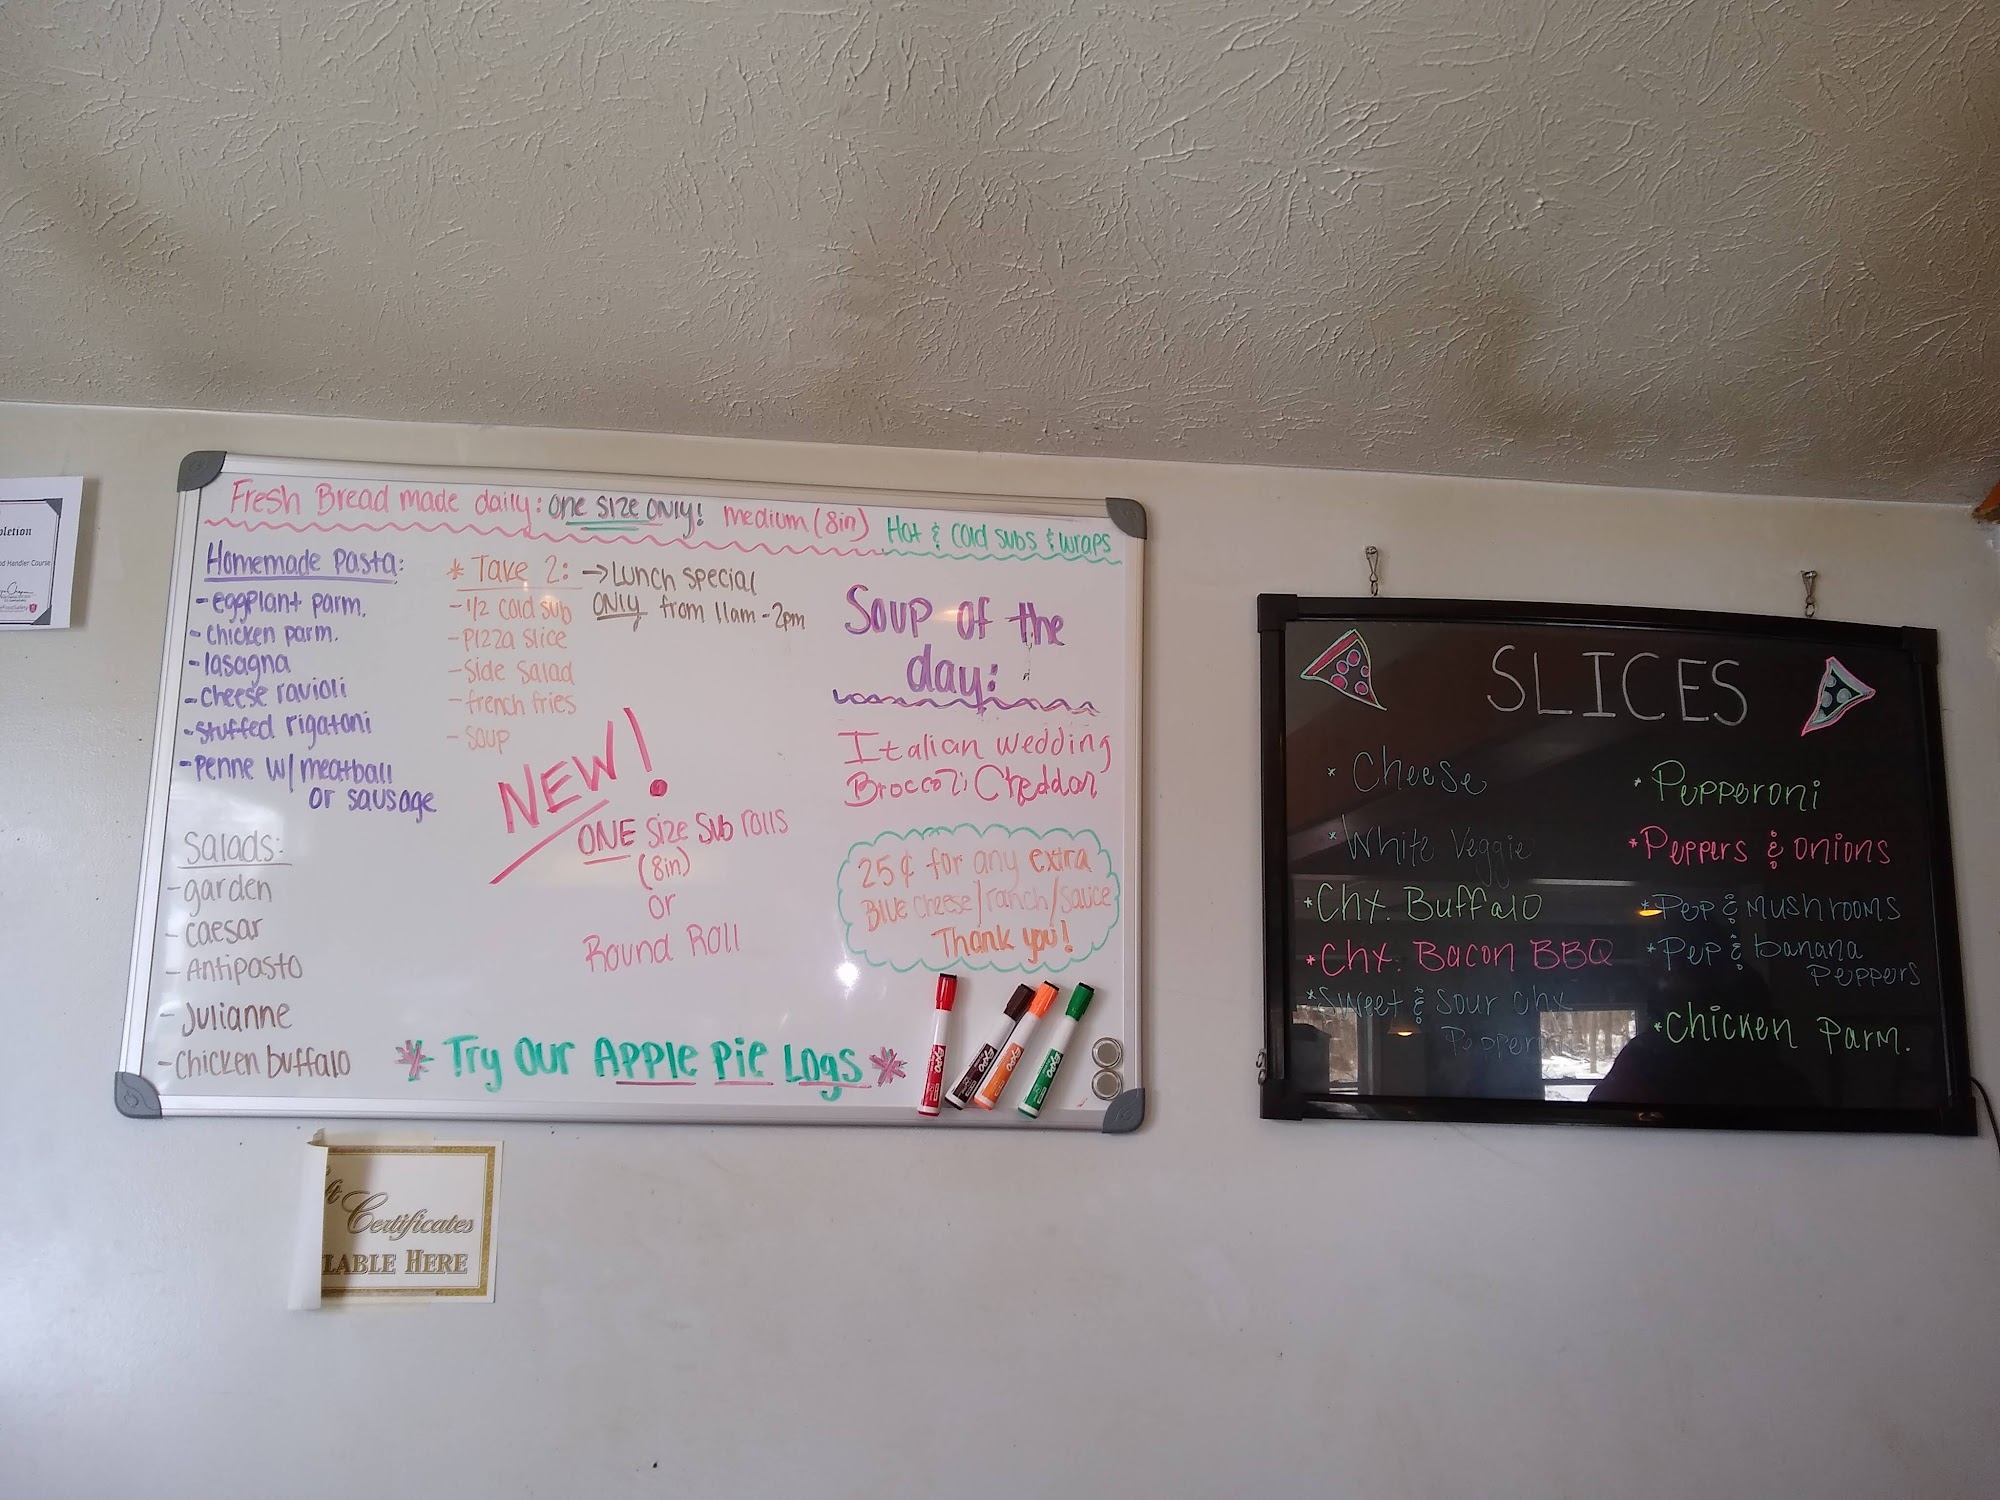 Fresh Bread made daily: one size only! medium (8in) Hot & cold subs & wraps
Homemade Pasta:
- eggplant parm.
- chicken parm.
- lasagna
- cheese ravioli
- stuffed rigatoni
- penne w/ meatball
or sausage
Salads:
- garden
- caesar
- Antipasto
- Julianne
- Chicken buffalo
* Take 2: → Lunch special
ONLY from 11am - 2pm
- 1/2 cold sub
- pizza slice
- side salad
- french fries
- soup
NEW!
ONE size sub rolls
(8in)
or
Round Roll
* Try Our Apple Pie Logs *
Soup of the
day:
Italian wedding
Broccoli Cheddar
25¢ for any extra
Blue cheese/ranch/sauce
Thank you!
EXPO
EXPO
EXPO
EXPO
SLICES
* Cheese
* White Veggie
* Chx. Buffalo
* Chx. Bacon BBQ
* Sweet & Sour chx
* Pepperoni
* Peppers & onions
* Pep & mushrooms
* Pep & banana
Peppers
* Chicken Parm.
Certificates
LABLE HERE
pletion
d Handler Course